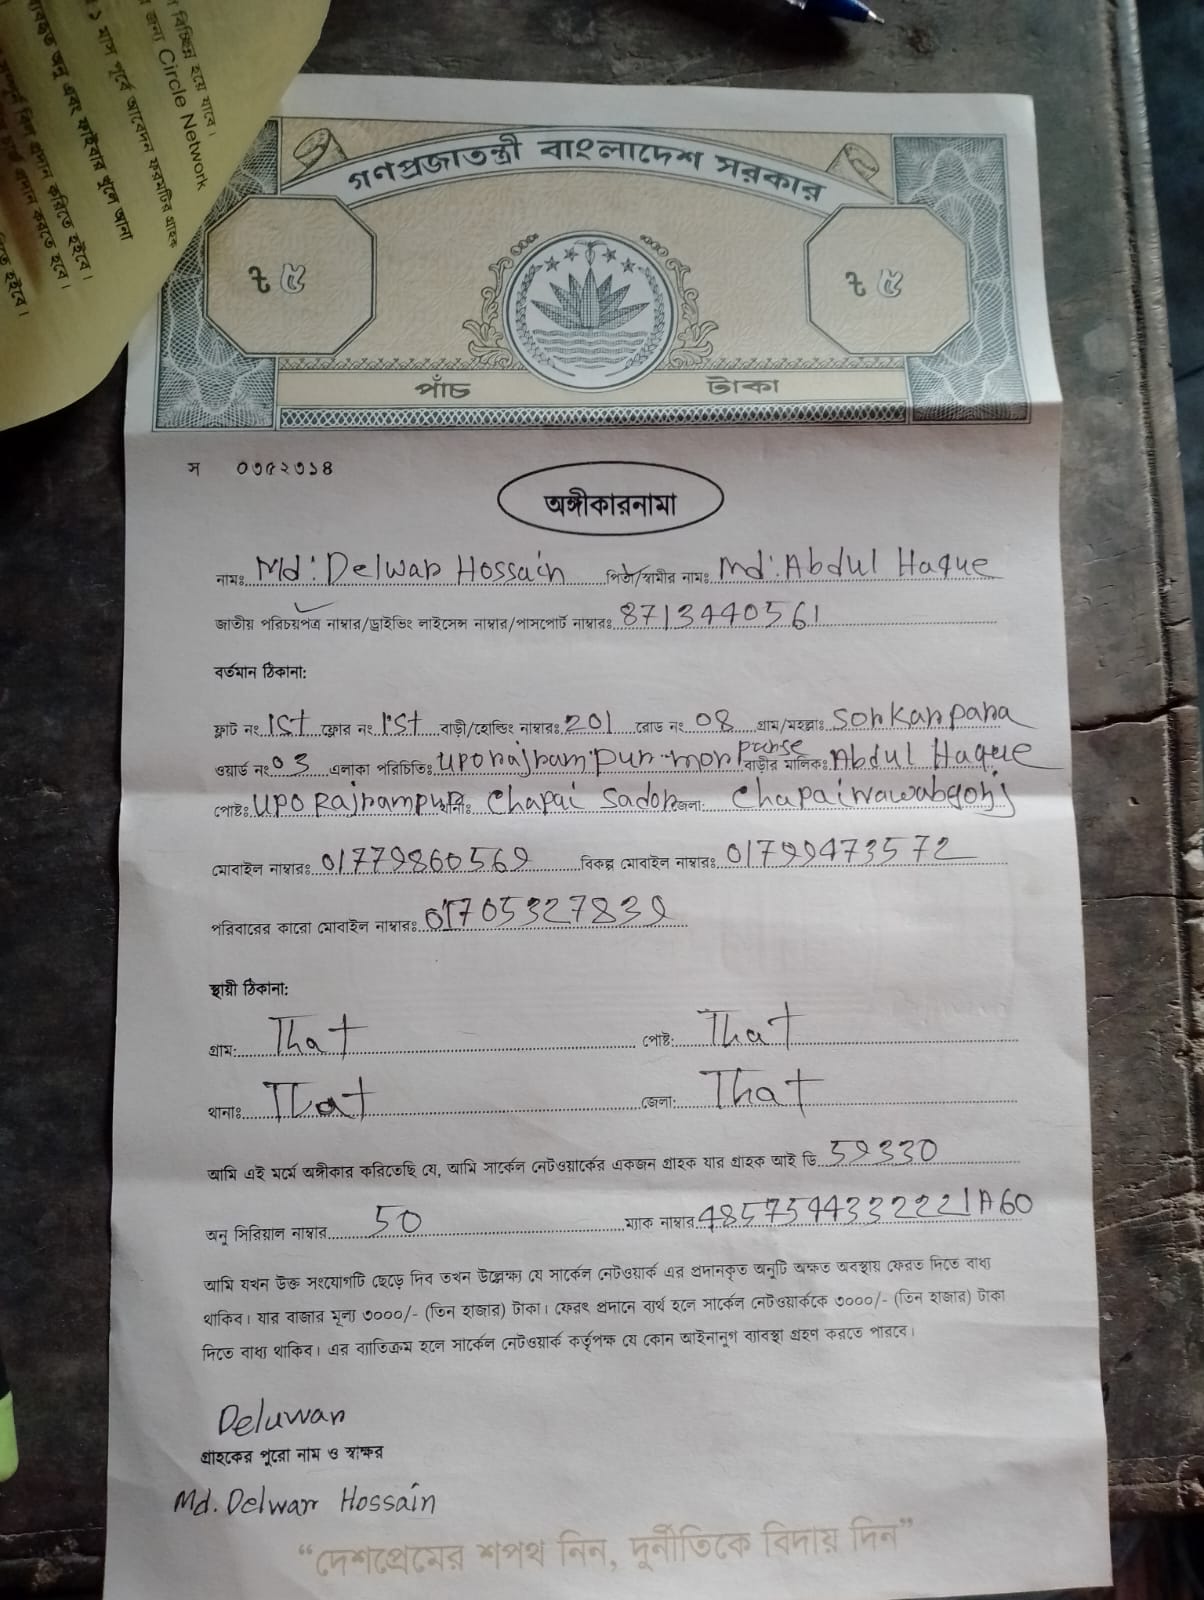 বিচ্ছিন্ন হয়ে যাবে।
জন্য Circle Network
১ মাস পূর্বে আবেদন ফরমটির গ্রাহক
অনু এবং ফাইবার খুলে আনা
বিল প্রদান করিতে হইবে।
প্রদান করতে হবে।
হইবে।
গণপ্রজাতন্ত্রী বাংলাদেশ সরকার
৳ ৫ ৳ ৫
পাঁচ টাকা
স ০৩৫২৩১৪
অঙ্গীকারনামা
নামঃ Md: Delwar Hossain পিতা/স্বামীর নামঃ Md: Abdul Haque
জাতীয় পরিচয়পত্র নাম্বার/ড্রাইভিং লাইসেন্স নাম্বার/পাসপোর্ট নাম্বারঃ 8713440561
বর্তমান ঠিকানা:
ফ্লাট নং 1St ফ্লোর নং 1'St বাড়ী/হোল্ডিং নাম্বারঃ 201 রোড নং 08 গ্রাম/মহল্লাঃ Sonkarpara
ওয়ার্ড নং 03 এলাকা পরিচিতিঃ Uporajrampur বাড়ীর মালিকঃ Abdul Haque
পোষ্টঃ Upo Rajrampur থানাঃ Chapai Sador জেলা: Chapainawabgonj
মোবাইল নাম্বারঃ 01779860569 বিকল্প মোবাইল নাম্বারঃ 01799473572
পরিবারের কারো মোবাইল নাম্বারঃ 01705327839
স্থায়ী ঠিকানা:
গ্রাম: That পোষ্ট: That
থানাঃ That জেলা: That
আমি এই মর্মে অঙ্গীকার করিতেছি যে, আমি সার্কেল নেটওয়ার্কের একজন গ্রাহক যার গ্রাহক আই ডি 59330
অনু সিরিয়াল নাম্বার 50 ম্যাক নাম্বার 485754433222 1A60
আমি যখন উক্ত সংযোগটি ছেড়ে দিব তখন উল্লেক্ষ্য যে সার্কেল নেটওয়ার্ক এর প্রদানকৃত অনুটি অক্ষত অবস্থায় ফেরত দিতে বাধ্য
থাকিব। যার বাজার মূল্য ৩০০০/- (তিন হাজার) টাকা। ফেরৎ প্রদানে ব্যর্থ হলে সার্কেল নেটওয়ার্ককে ৩০০০/- (তিন হাজার) টাকা
দিতে বাধ্য থাকিব। এর ব্যাতিক্রম হলে সার্কেল নেটওয়ার্ক কর্তৃপক্ষ যে কোন আইনানুগ ব্যাবস্থা গ্রহণ করতে পারবে।
Deluwar
গ্রাহকের পুরো নাম ও স্বাক্ষর
Md. Delwar Hossain
“দেশপ্রেমের শপথ নিন, দুর্নীতিকে বিদায় দিন”